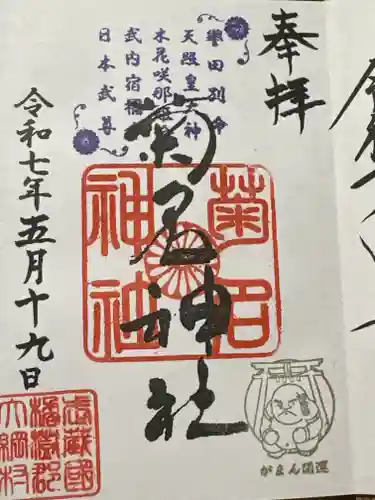 奉拝
誉田別命
天照皇大神
木花咲耶姫命
武内宿禰
日本武尊
菊名神社
菊名神社
令和七年五月十九日
武蔵國
橘樹郡
大綱村
がまん開運